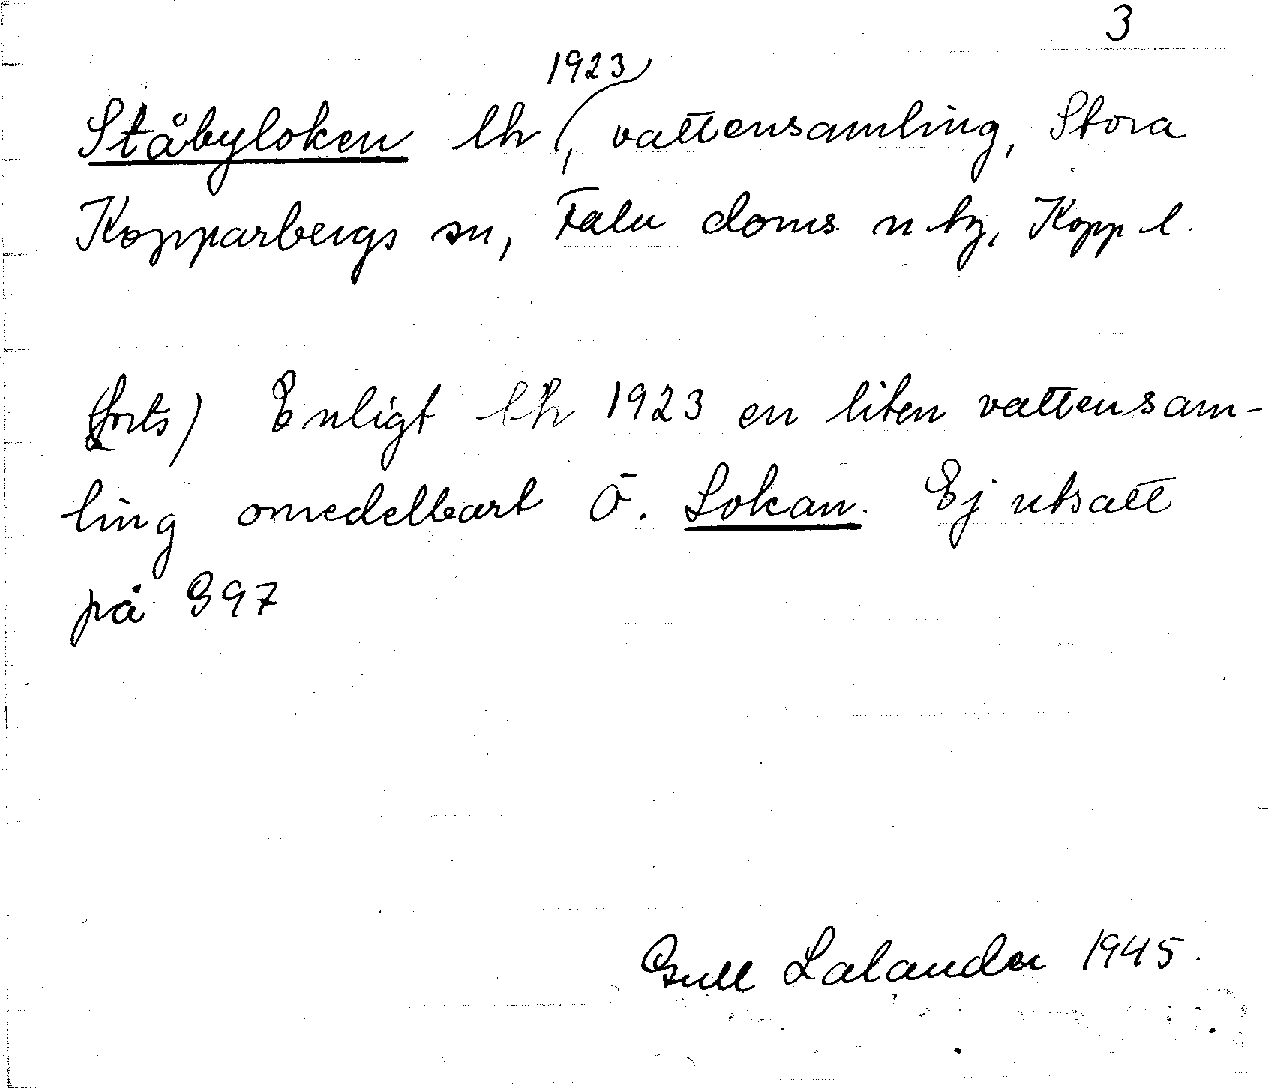 3
1923
Ståbyloken lh, vattensamling, Stora
Kopparbergs sn, Falu doms n tg, Kopp l.
(forts) Enligt lh 1923 en liten vattensam-
ling omedelbart Ö. Lokan. Ej utsatt
på G97
Gull Lalander 1945.